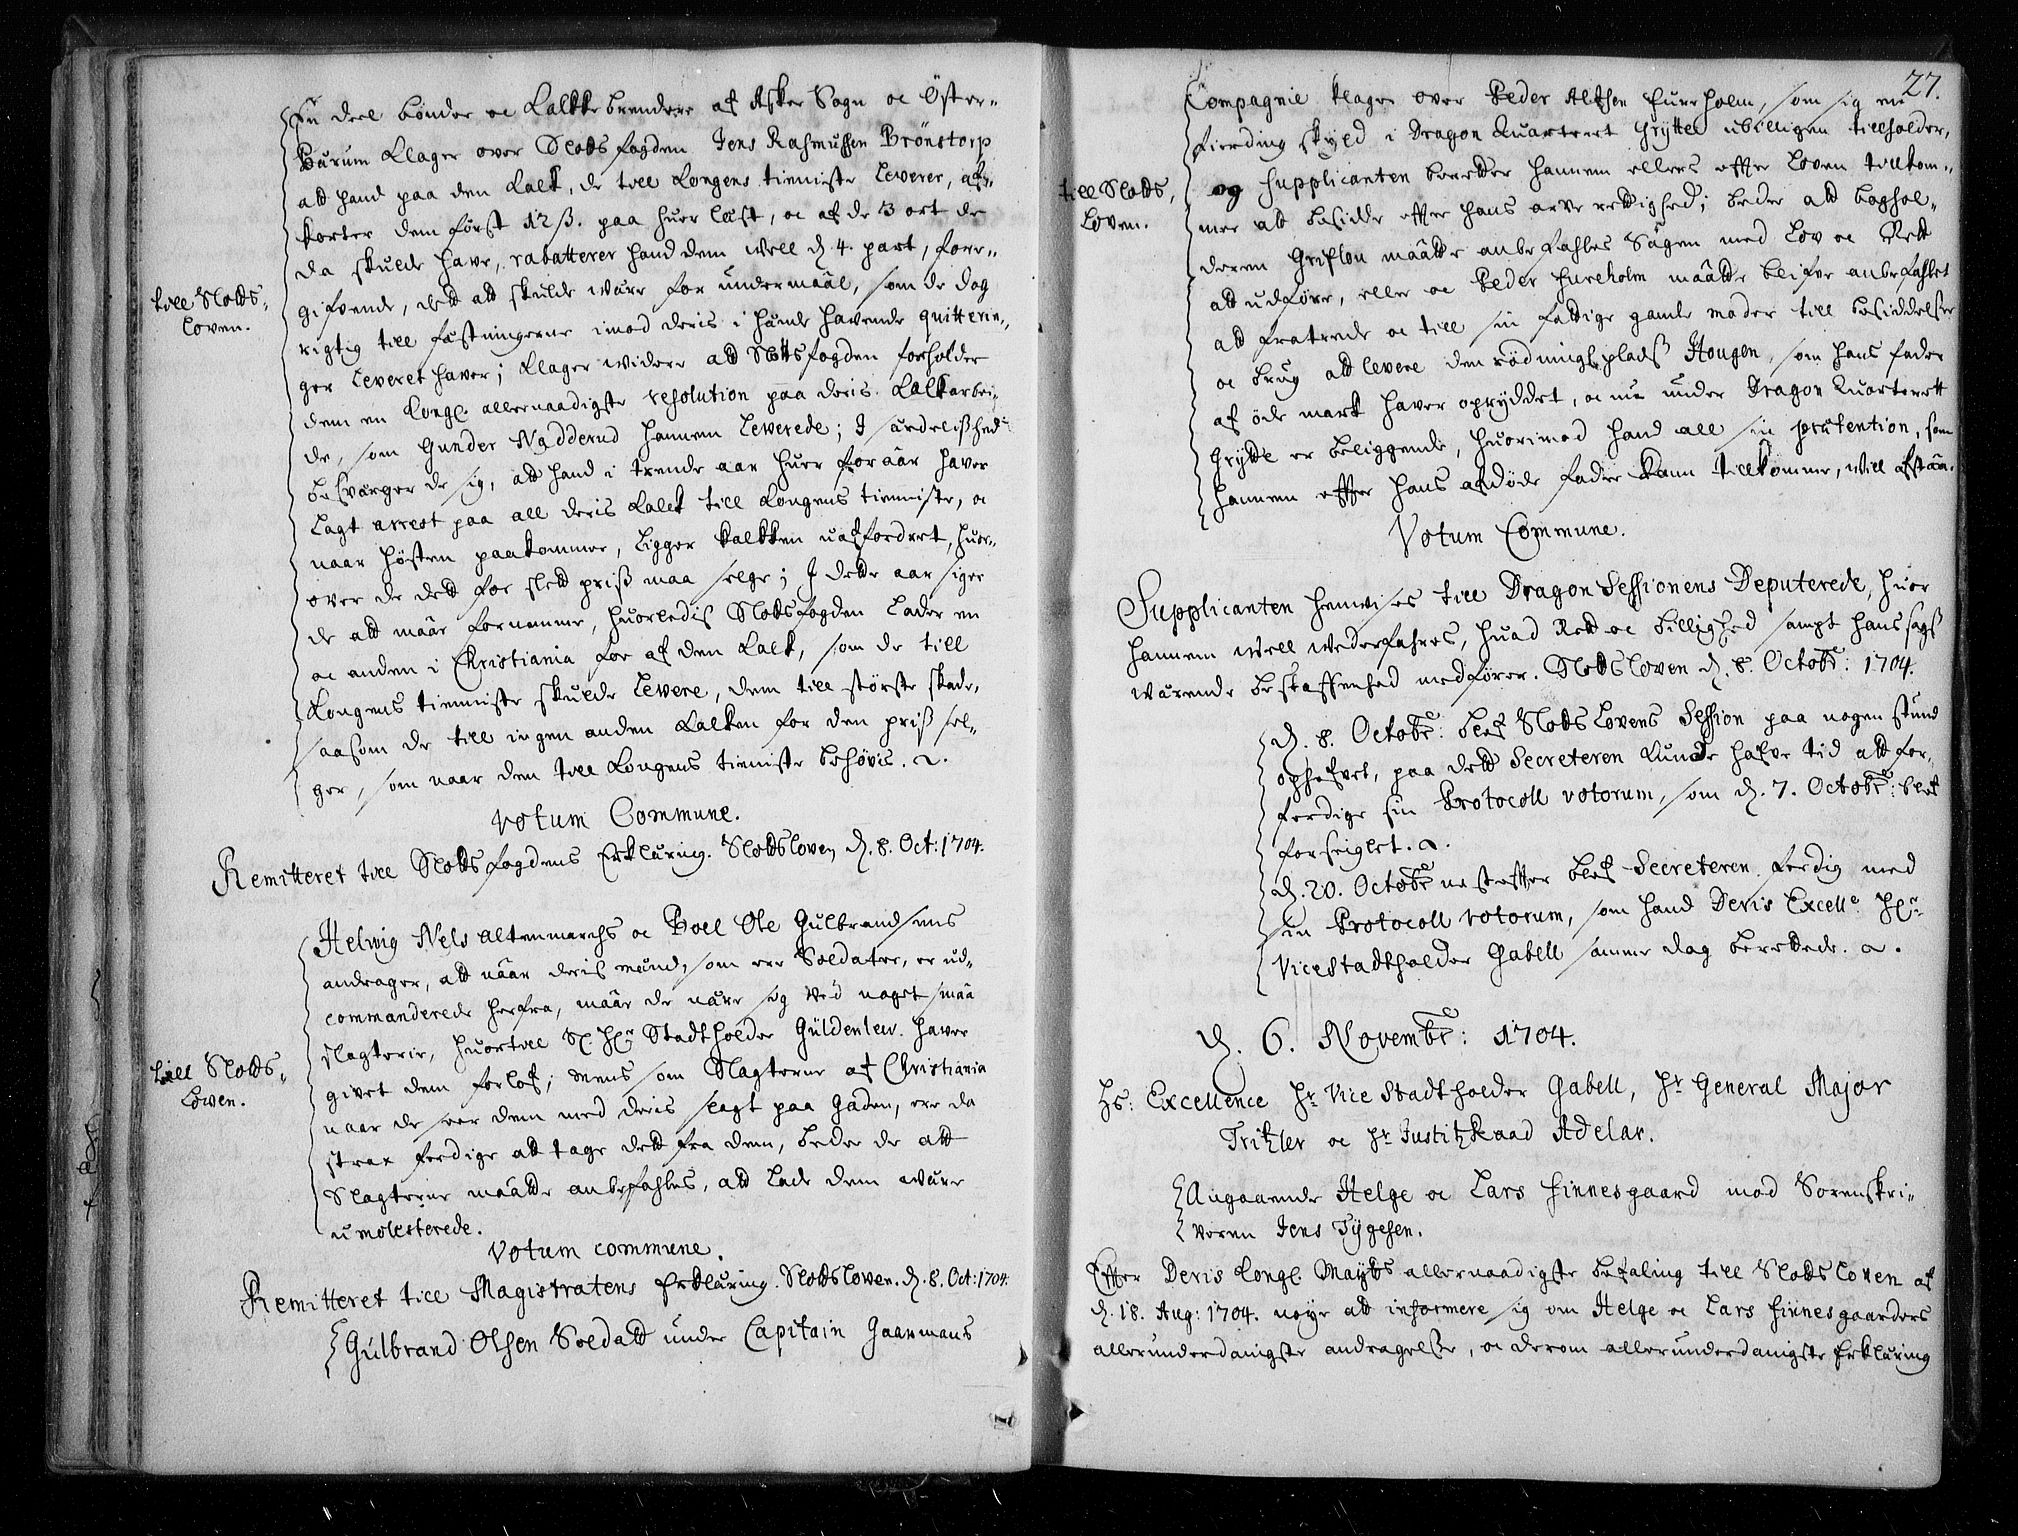 En deel bønder oc Kalkbrendere af Asker Sogn oc Öster-
Bærum klager over Slotsfogden Jens Rasmussen Brönstorp
att hand paa den Kalk, de till Kongens tienniste leverer, af-
korter dem först 12 ß. paa huer läst, oc af de 3 ort de
da skulde have, rabatterer hand dem well d. 4. part, fore-
gifvende, dett att skulde være for undermaal, som de dog
till Slotts-
Loven.
rigtig till fæstningerne imod deris i hænde havende quitterin-
ger leveret haver; klager widere att Slottsfogden forholder
dem en Kongl. allernaadigste resolution paa deris Kalkarbei-
de, som Gunder Nadderud hannem leverede; I særdelished
besværger de sig, att hand i trende aar huer foraar haver
lagt arrest paa all deris Kalk till Kongens tienniste, oc
naar høsten paakommer, ligger kalken uaffordret, huor-
over de dett for slett priß maa selge; I dette aar siger
de att maa fornemme, huorledis Slotsfogden lader en
oc anden i Christiania faae af den Kalk, som de till
Kongens tienniste skulde levere, dem till störste skade,
saasom de till ingen anden Kalken for den priß sel-
ger, som naar den till Kongens tienniste behövis. &.
Votum Commune.
Remitteret till Slotsfogdens Erklæring. Slotsloven d. 8. Oct: 1704.
Helwig Nels Altenmarchs oc Boel Ole Gulbrandsens
andrager, att naar deris mænd, som ere Soldater, er ud-
commanderede herfra, maa de nære sig ved noget smaa
slagterie, huortill Sl. Hr. Stadtholder Güldenlew haver
till Slotts-
Loven.
givet dem forlof; mens som Slagterne af Christiania
naar de seer dem med deris slagt paa Gaden, ere da
strax ferdige att tage dett fra dem, beder de att
Slagterne maatte anbefahles, att lade dem være
umolesterede.
Votum commune.
Remitteret till Magistratens Erklæring. Slotsloven. d. 8. Oct: 1704.
Gulbrand Olsen Soldatt under Capitain Gaarmans
27.
Compagnie klager over Peder Alfsen Fureholm, som sig en
fierding skyld i Dragon Quarteret Grytte ubilligen tillholder,
till Slotts-
Loven.
og Supplicanten beretter hannem ellers effter Loven tilkom-
mer att besidde effter hans arve rettighed; beder att
deren maatte anbefahles Sagen med Lov oc Rett
att udføre, eller oc Peder Fureholm maatte blifve anbefahlet
att fratrede oc till sin fattige gamle moder till besiddelse
oc brug att levere den rödningsplads Hougen, som hans fader
af øde mark haver opryddet, oc nu under Dragon Quarterett
Grytte er beliggende, huorimod hand all sin prætention, som
hannem effter hans afdøde fader kunn tillkomme, will afstaa.
Votum Commune.
Supplicanten henvises till Dragon Sessionens Deputerede, huor
hannem well wederfahres, huad Rett oc billighed sampt hans sags
wærende beskaffenhed medfører. Slotsloven d. 8. Octobr: 1704.
d. 8. Octobr: blef SlottsLovens Session paa nogen stund
ophefvet, paa dett Secreteren kunde hafve tid att for-
ferdige sin Protocoll votorum, som d. 7. Octobr: blef
forseiglet. &.
d. 20. Octobr nesteffter blef Secreteren ferdig med
sin Protocoll votorum, som hand Deris Excell: Hr.
Vicestadtholder Gabell samme dag berettede. &.
d. 6. Novembr: 1704.
Hs: Excellence Hr. Vice Stadtholder Gabell, Hr General Major
Tritzler oc Hr JustitzRaad Adelar.
Angaaende Helge oc Lars Finnesgaard mod Sorenskri-
veren Jens Tygesen.
Effter Deris Kongl. Mayts allernaadigste befaling till SlottsLoven af
d. 18. Aug: 1704. nøye att informere sig om Helge oc Lars Finnesgaarders
allerunderdanigste andragelse, oc derom allerunderdanigste Erklæring